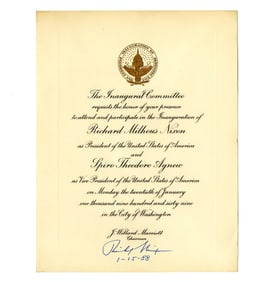 The Inaugural Committee
requests the honor of your presence
to attend and participate in the Inauguration of
Richard Milhous Nixon
as President of the United States of America
and
Spiro Theodore Agnew
as Vice President of the United States of America
on Monday the twentieth of January
one thousand nine hundred and sixty nine
in the City of Washington
J. Willard Marriott
Chairman